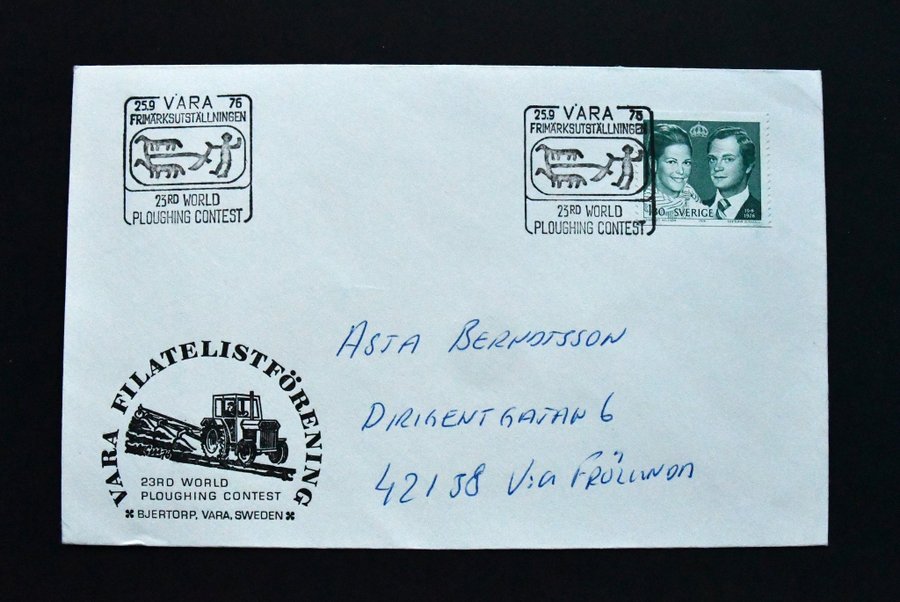 25.9 VARA 76
FRIMÄRKSUTSTÄLLNINGEN
23RD WORLD
PLOUGHING CONTEST
25.9 VARA 76
FRIMÄRKSUTSTÄLLNINGEN
23RD WORLD
PLOUGHING CONTEST
130 SVERIGE
1976
ASTA BERNDTSSON
DIRIGENTGATAN 6
421 38 V:A FRÖLUNDA
VARA FILATELISTFÖRENING
23RD WORLD
PLOUGHING CONTEST
BJERTORP, VARA, SWEDEN